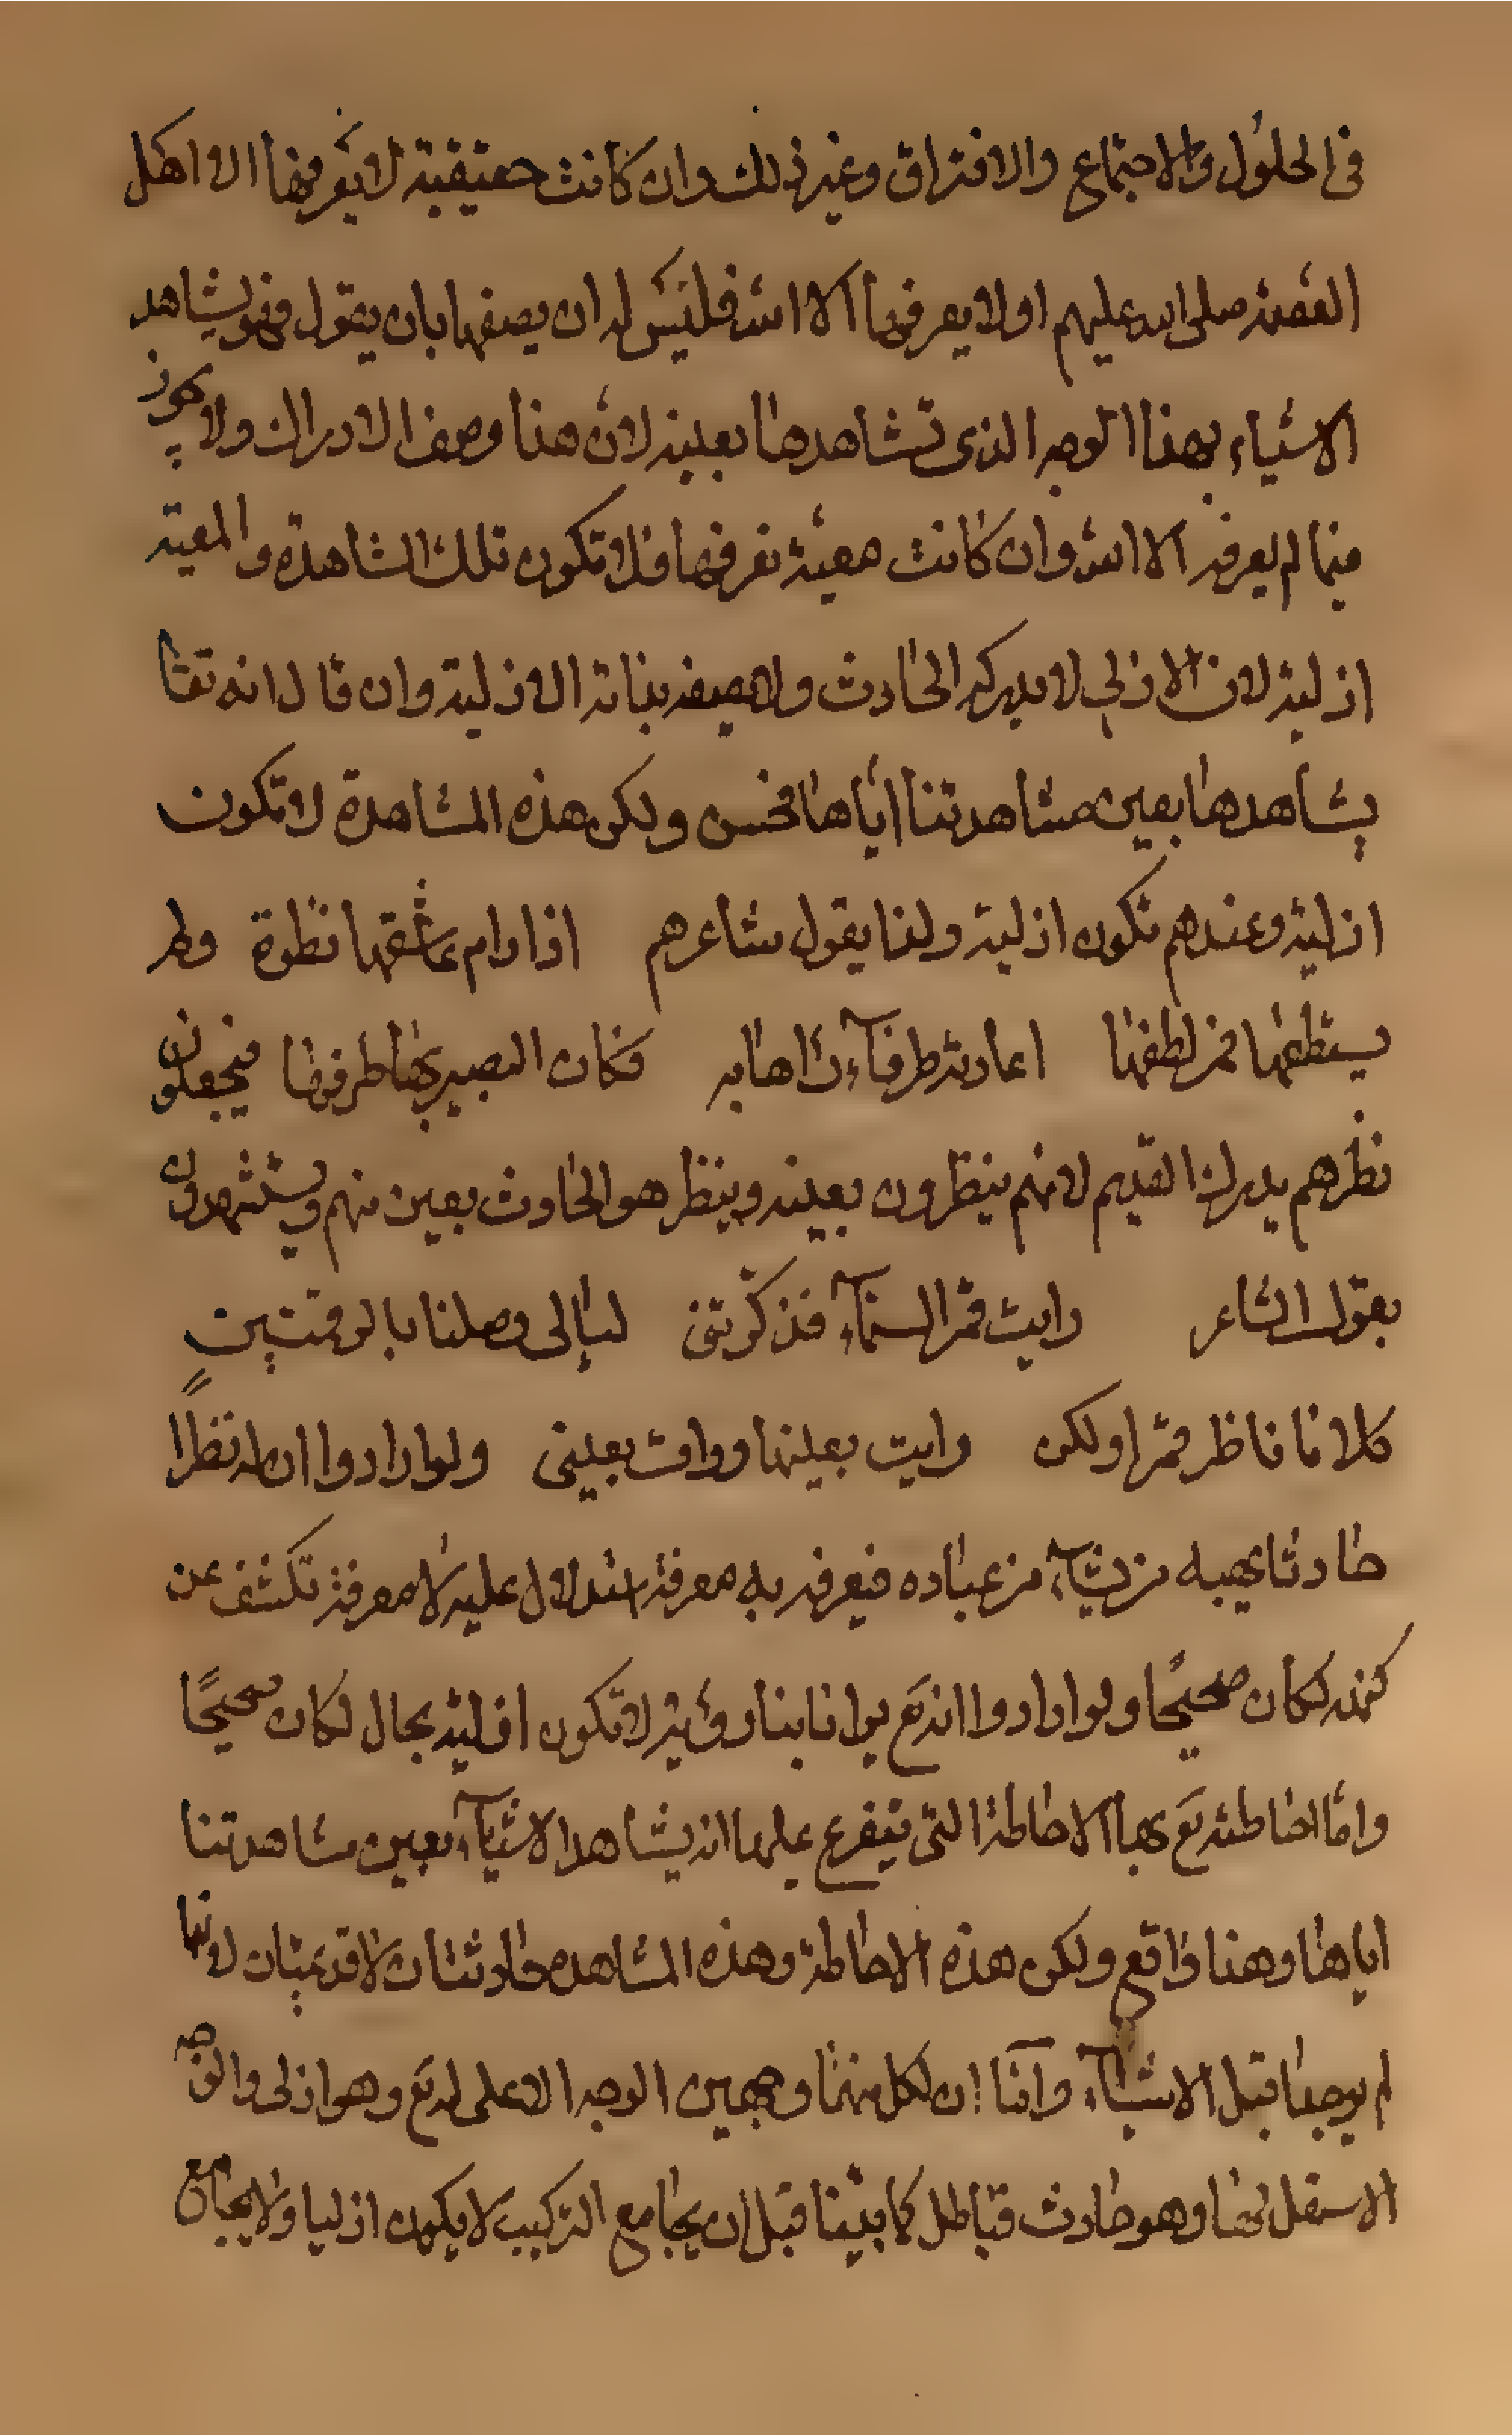 فى الحلول والاجتماع والافتراق وغير ذلك وان كانت حقيقية لا يعرفها الا اهل
العصمة صلى الله عليهم او لا يعرفها الا الله فليس له ان يصفها بان يقول فهو يشاهد
الاشياء بهذا الوجه الذى تشاهدها بعينه لان هذا وصف الادراك ولا يجوز
فيما لم يعرفه الا الله وان كانت معية نعرفها فلا تكون تلك المشاهدة والمعية
ازلية لان الازلي لا يدركه الحادث ولا يصفه بذاته الازلية وان قال انه تعا
يشاهدها بعين مشاهدتنا اياها فحسن ولكن هذه المشاهدة لا تكون
ازلية وعندهم تكون ازلية ولذا يقول شاعرهم اذا رام عاشقها نظرة ولم
يستطعها فمن لطفها اعارته طرفا رآها به فكان البصير بها طرفها فيجعلون
نظرهم يدرك القديم لانهم ينظرون بعينه وينظر هو الحادث بعين منهم ويستشهدون
بقول الشاعر رايت قمر السماء فذكرتنى ليالى وصلنا بالرقمتين
كلانا ناظر قمرا ولكن رايت بعينها ورات بعينى ولو ارادوا ان له نظرا
حادثا يهبه من يشاء من عباده فيعرفه به معرفة استدلال عليه لا معرفة تكشف عن
كنهه لكان صحيحا ولو ارادوا انه تع يرانا بنا ورؤيته لا تكون ازلية بحال لكان صحيحا
وامّا احاطته تع بها الاحاطة التى يتفرع عليها انه يشاهد الاشياء بعين مشاهدتنا
اياها وهذا واقع ولكن هذه الاحاطة وهذه المشاهده حادثتان لا قديمتان لانها
لم يوجدا قبل الاشياء وامّا ان لكل منهما وجهين الوجه الاعلى له تع وهو ازلى والوجه
الاسفل لها وهو حادث فباطل كما بينا قبل ان يجامع التركيب لا يكون ازليا ولا يجامع